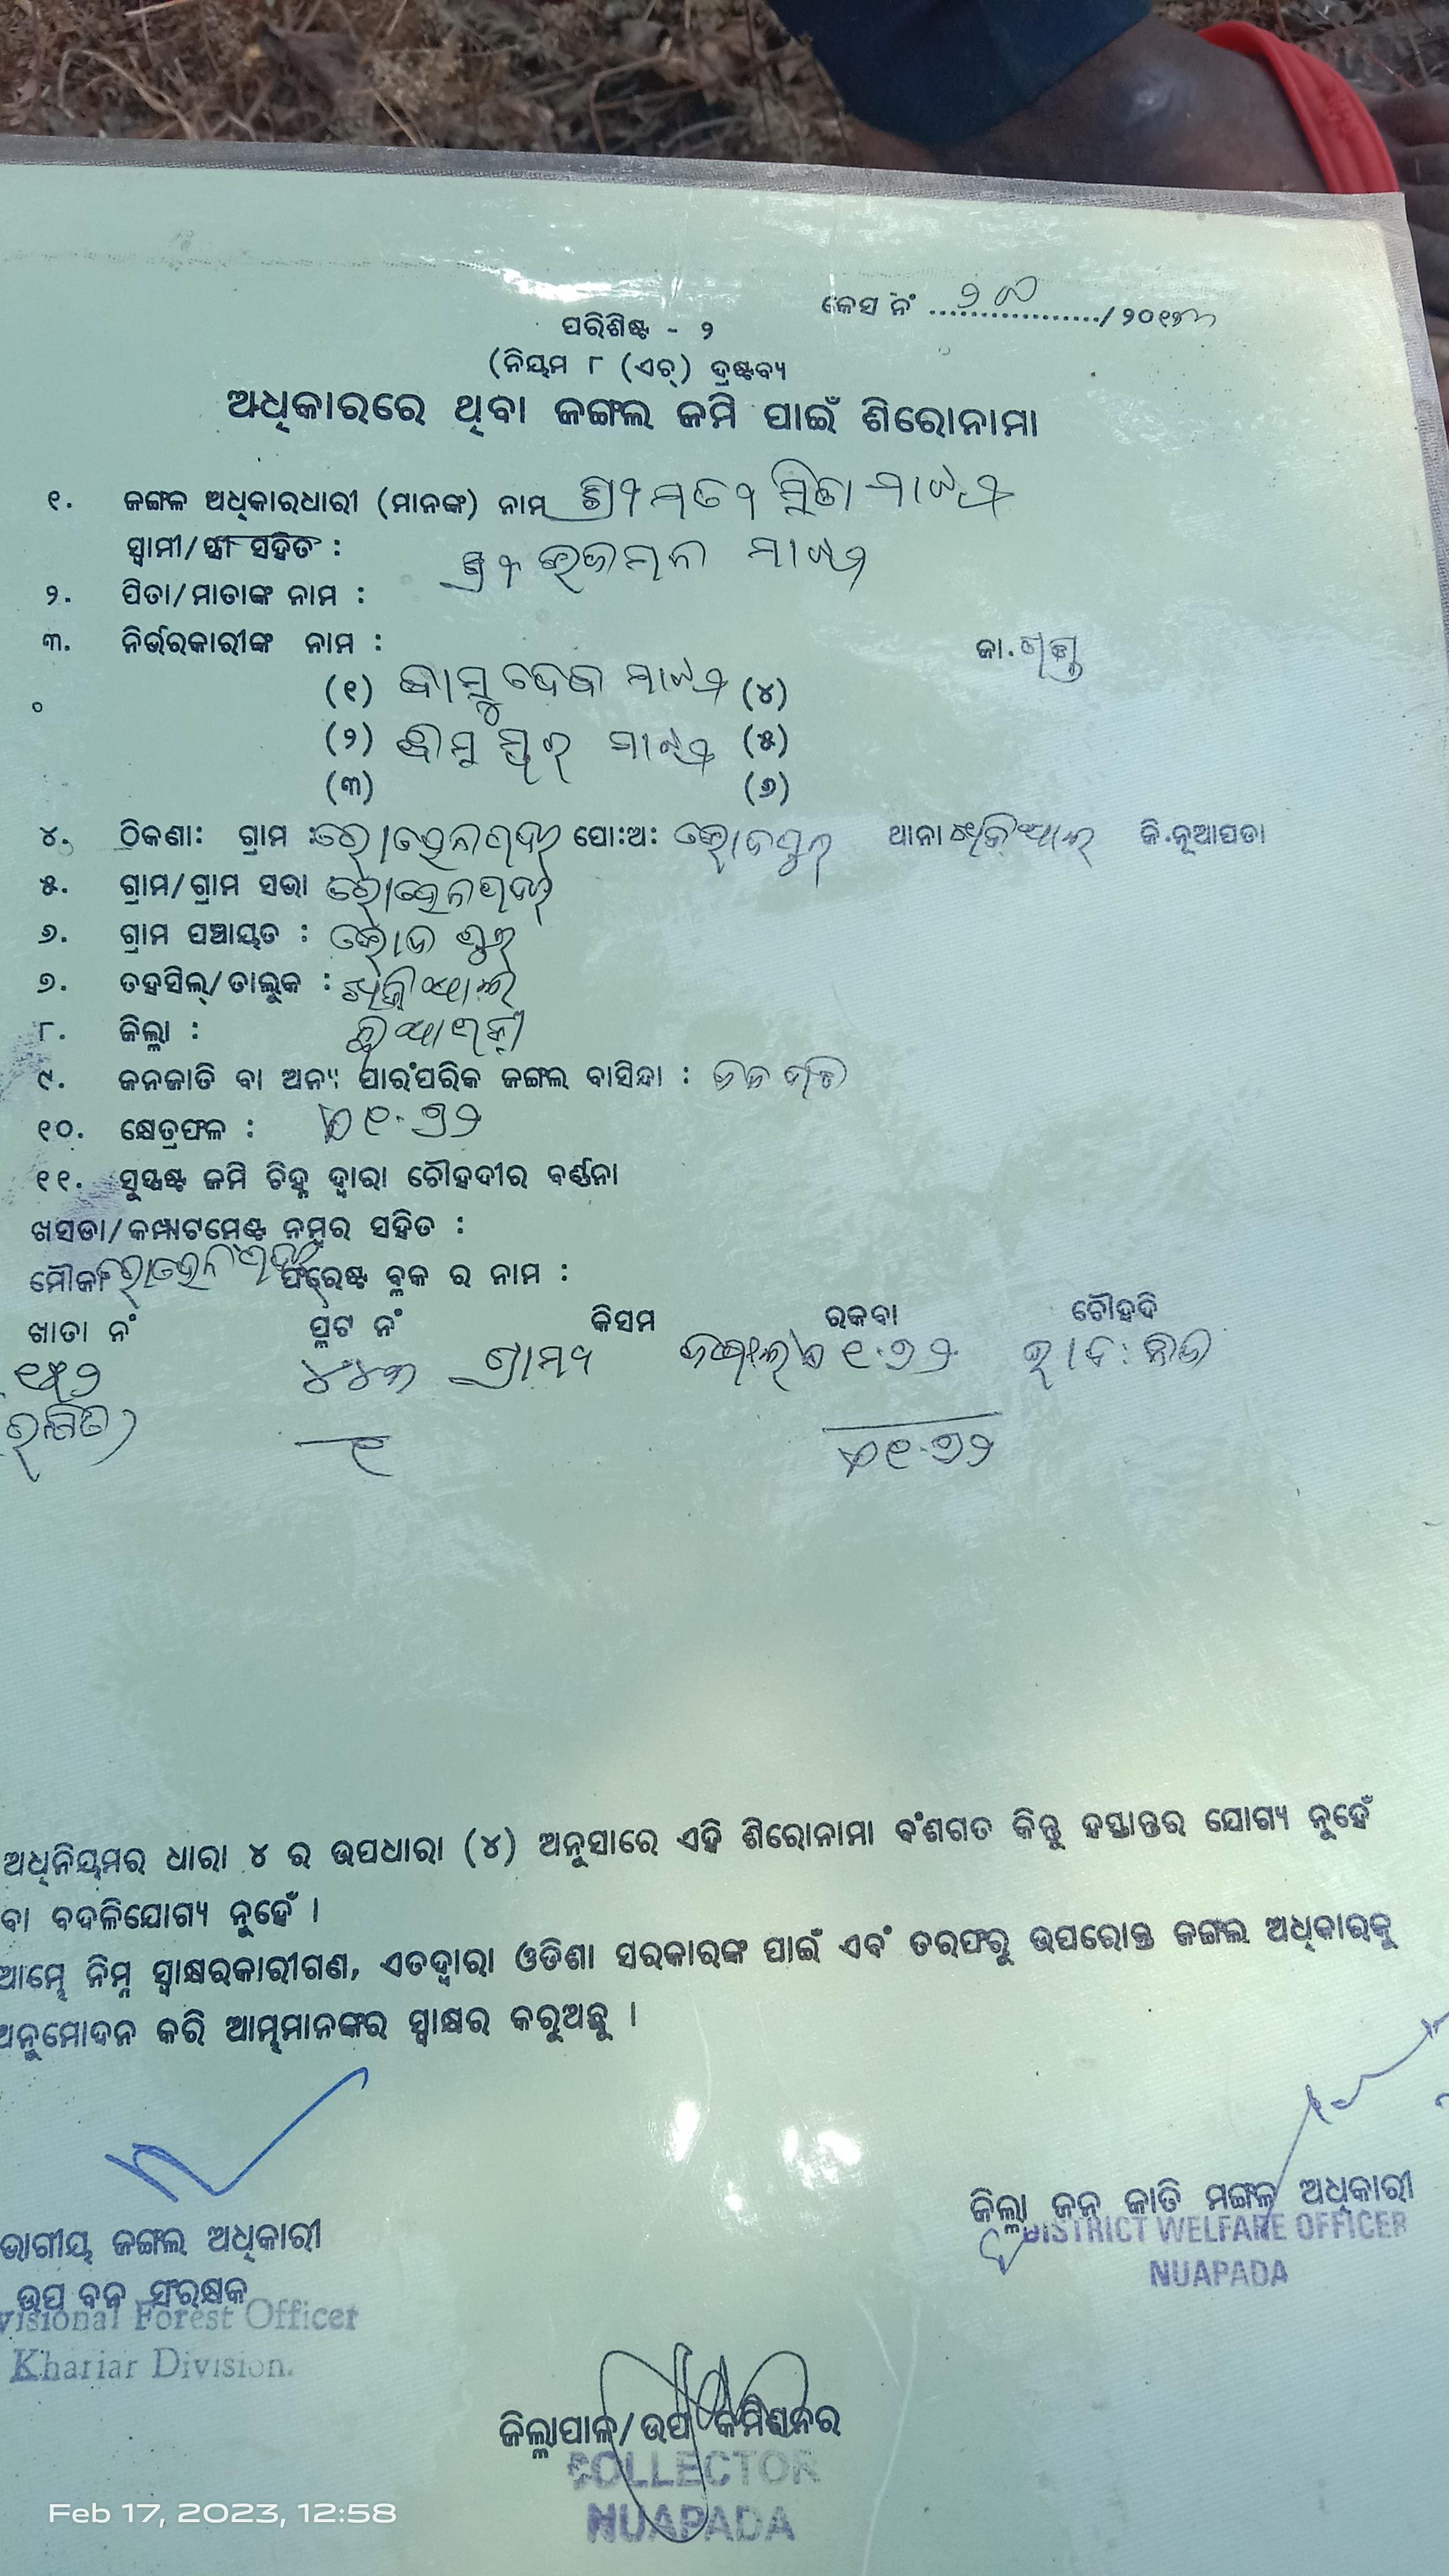 କେସ ନଂ ................../୨୦୧୩
ପରିଶିଷ୍ଟ - ୨
(ନିୟମ ୮ (ଏଚ୍) ଦ୍ରଷ୍ଟବ୍ୟ
ଅଧିକାରରେ ଥିବା ଜଙ୍ଗଲ ଜମି ପାଇଁ ଶିରୋନାମା
୧. ଜଙ୍ଗଳ ଅଧିକାରଧାରୀ (ମାନଙ୍କ) ନାମ ଶ୍ରୀମତୀ ମାଝୀ
ସ୍ଵାମୀ/ସ୍ତ୍ରୀ ସହିତ : ମାଝୀ
୨. ପିତା/ମାତାଙ୍କ ନାମ :
୩. ନିର୍ଭରକାରୀଙ୍କ ନାମ : ଜା.
(୧) ବାସୁଦେବ ମାଝୀ (୪)
(୨) ମାଝୀ (୫)
(୩) (୬)
୪. ଠିକଣା: ଗ୍ରାମ : ପୋ:ଅ: ଭୋଜପୁର ଥାନା ଖଡ଼ିଆଳ ଜି.ନୂଆପଡା
୫. ଗ୍ରାମ/ଗ୍ରାମ ସଭା :
୬. ଗ୍ରାମ ପଞ୍ଚାୟତ : ଭୋଜପୁର
୭. ତହସିଲ୍/ତାଲୁକ : ଖଡ଼ିଆଳ
୮. ଜିଲ୍ଲା : ନୂଆପଡ଼ା
୯. ଜନଜାତି ବା ଅନ୍ୟ ପାରଂପରିକ ଜଙ୍ଗଲ ବାସିନ୍ଦା : ଜନଜାତି
୧୦. କ୍ଷେତ୍ରଫଳ : ୧.୭୨
୧୧. ସୁସ୍ପଷ୍ଟ ଜମି ଚିହ୍ନ ଦ୍ୱାରା ଚୌହଦୀର ବର୍ଣ୍ଣନା
ଖସଡା/କମ୍ପାଟମେଣ୍ଟ ନମ୍ବର ସହିତ :
ମୌଜା ଫରେଷ୍ଟ ବ୍ଲକ ର ନାମ :
ଖାତା ନଂ ପ୍ଲଟ ନଂ କିସମ ରକବା ଚୌହଦି
୧୫୨ ୪୪୩ ଗ୍ରାମ୍ୟ ଜଙ୍ଗଲ ୧.୭୨
୧ ୧.୭୨
ଅଧିନିୟମର ଧାରା ୪ ର ଉପଧାରା (୪) ଅନୁସାରେ ଏହି ଶିରୋନାମା ବଂଶଗତ କିନ୍ତୁ ହସ୍ତାନ୍ତର ଯୋଗ୍ୟ ନୁହେଁ
ବା ବଦଳିଯୋଗ୍ୟ ନୁହେଁ ।
ଆମ୍ଭେ ନିମ୍ନ ସ୍ୱାକ୍ଷରକାରୀଗଣ, ଏତଦ୍ଵାରା ଓଡିଶା ସରକାରଙ୍କ ପାଇଁ ଏବଂ ତରଫରୁ ଉପରୋକ୍ତ ଜଙ୍ଗଲ ଅଧିକାରକୁ
ଅନୁମୋଦନ କରି ଆମ୍ଭମାନଙ୍କର ସ୍ୱାକ୍ଷର କରୁଅଛୁ ।
ଜିଲ୍ଲା ଜନ ଜାତି ମଙ୍ଗଳ ଅଧିକାରୀ
DISTRICT WELFARE OFFICER
NUAPADA
ଭାଗୀୟ ଜଙ୍ଗଲ ଅଧିକାରୀ
ଉପ ବନ ସଂରକ୍ଷକ
visional Forest Officer
Khariar Division.
ଜିଲ୍ଲାପାଳ/ଉପ କମିଶନର
COLLECTOR
NUAPADA
Feb 17, 2023, 12:58